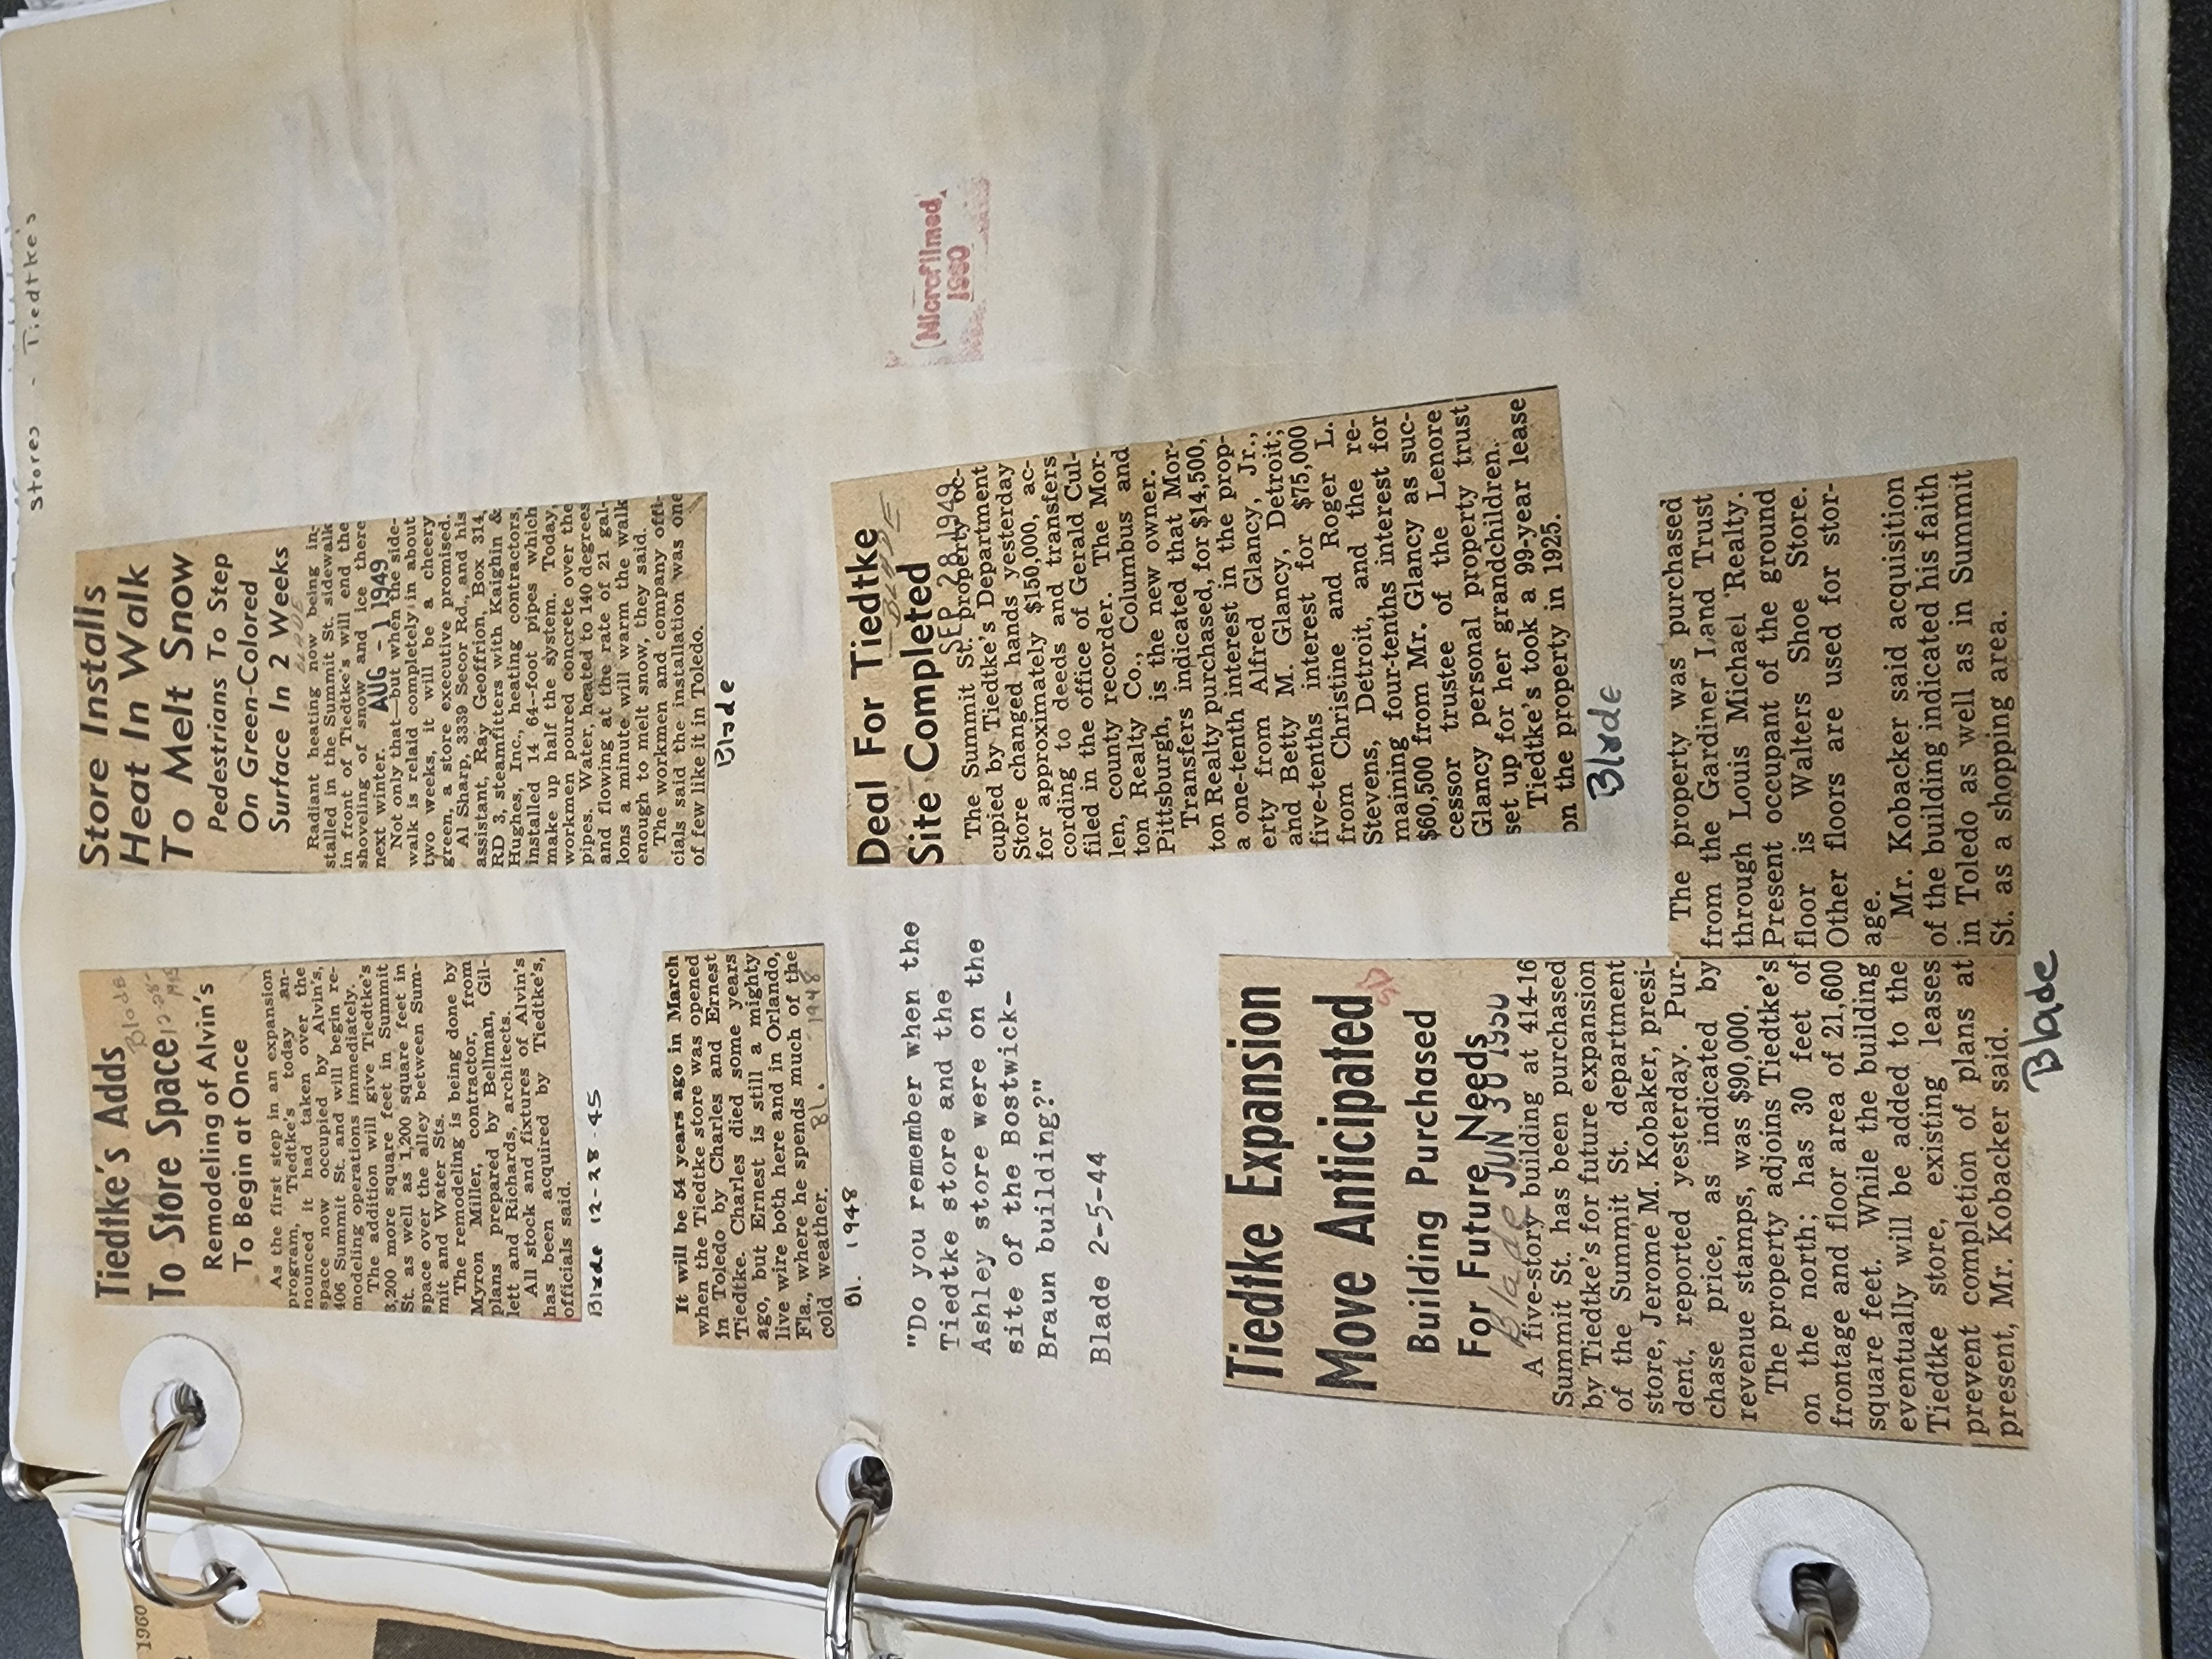 Stores - Tiedtke's
Tiedtke's Adds
To Store Space
Blade
12-28-
Remodeling of Alvin's
To Begin at Once
As the first step in an expansion
program, Tiedtke's today an-
nounced it had taken over the
space now occupied by Alvin's,
406 Summit St. and will begin re-
modeling operations immediately.
The addition will give Tiedtke's
3,200 more square feet in Summit
St. as well as 1,200 square feet in
space over the alley between Sum-
mit and Water Sts.
The remodeling is being done by
Myron Miller, contractor, from
plans prepared by Bellman, Gil-
lett and Richards, architects.
All stock and fixtures of Alvin's
has been acquired by Tiedtke's,
officials said.
Blade 12-28-45
It will be 54 years ago in March
when the Tiedtke store was opened
in Toledo by Charles and Ernest
Tiedtke. Charles died some years
ago, but Ernest is still a mighty
live wire both here and in Orlando,
Fla., where he spends much of the
cold weather.
Bl. 1948
Bl. 1948
"Do you remember when the
Tiedtke store and the
Ashley store were on the
site of the Bostwick-
Braun building?"
Blade 2-5-44
Tiedtke Expansion
Move Anticipated
Building Purchased
For Future Needs
Blade JUN 30 1950
A five-story building at 414-16
Summit St. has been purchased
by Tiedtke's for future expansion
of the Summit St. department
store, Jerome M. Kobaker, presi-
dent, reported yesterday. Pur-
chase price, as indicated by
revenue stamps, was $90,000.
The property adjoins Tiedtke's
on the north; has 30 feet of
frontage and floor area of 21,600
square feet. While the building
eventually will be added to the
Tiedtke store, existing leases
prevent completion of plans at
present, Mr. Kobacker said.
The property was purchased
from the Gardiner Land Trust
through Louis Michael Realty.
Present occupant of the ground
floor is Walters Shoe Store.
Other floors are used for stor-
age.
Mr. Kobacker said acquisition
of the building indicated his faith
in Toledo as well as in Summit
St. as a shopping area.
Blade
Store Installs
Heat In Walk
To Melt Snow
Pedestrians To Step
On Green-Colored
Surface In 2 Weeks
BLADE
AUG - 1 1949
Radiant heating now being in-
stalled in the Summit St. sidewalk
in front of Tiedtke's will end the
shoveling of snow and ice there
next winter.
Not only that—but when the side-
walk is relaid completely in about
two weeks, it will be a cheery
green, a store executive promised.
Al Sharp, 3339 Secor Rd., and his
assistant, Ray Geoffrion, Box 314,
RD 3, steamfitters with Kaighin &
Hughes, Inc., heating contractors,
installed 14 64--foot pipes which
make up half the system. Today,
workmen poured concrete over the
pipes. Water, heated to 140 degrees
and flowing at the rate of 21 gal-
lons a minute will warm the walk
enough to melt snow, they said.
The workmen and company offi-
cials said the installation was one
of few like it in Toledo.
Blade
Deal For Tiedtke
Site Completed
BLADE
SEP 28 1949
The Summit St. property oc-
cupied by Tiedtke's Department
Store changed hands yesterday
for approximately $150,000, ac-
cording to deeds and transfers
filed in the office of Gerald Cul-
len, county recorder. The Mor-
ton Realty Co., Columbus and
Pittsburgh, is the new owner.
Transfers indicated that Mor-
ton Realty purchased, for $14,500,
a one-tenth interest in the prop-
erty from Alfred Glancy, Jr.,
and Betty M. Glancy, Detroit;
five-tenths interest for $75,000
from Christine and Roger L.
Stevens, Detroit, and the re-
maining four-tenths interest for
$60,500 from Mr. Glancy as suc-
cessor trustee of the Lenore
Glancy personal property trust
set up for her grandchildren.
Tiedtke's took a 99-year lease
on the property in 1925.
Blade
Microfilmed
1980
1960